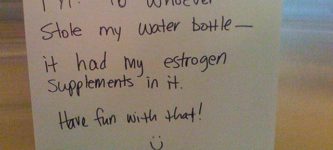 FYI: To whoever
Stole my water bottle—
it had my estrogen
Supplements in it.
Have fun with that!